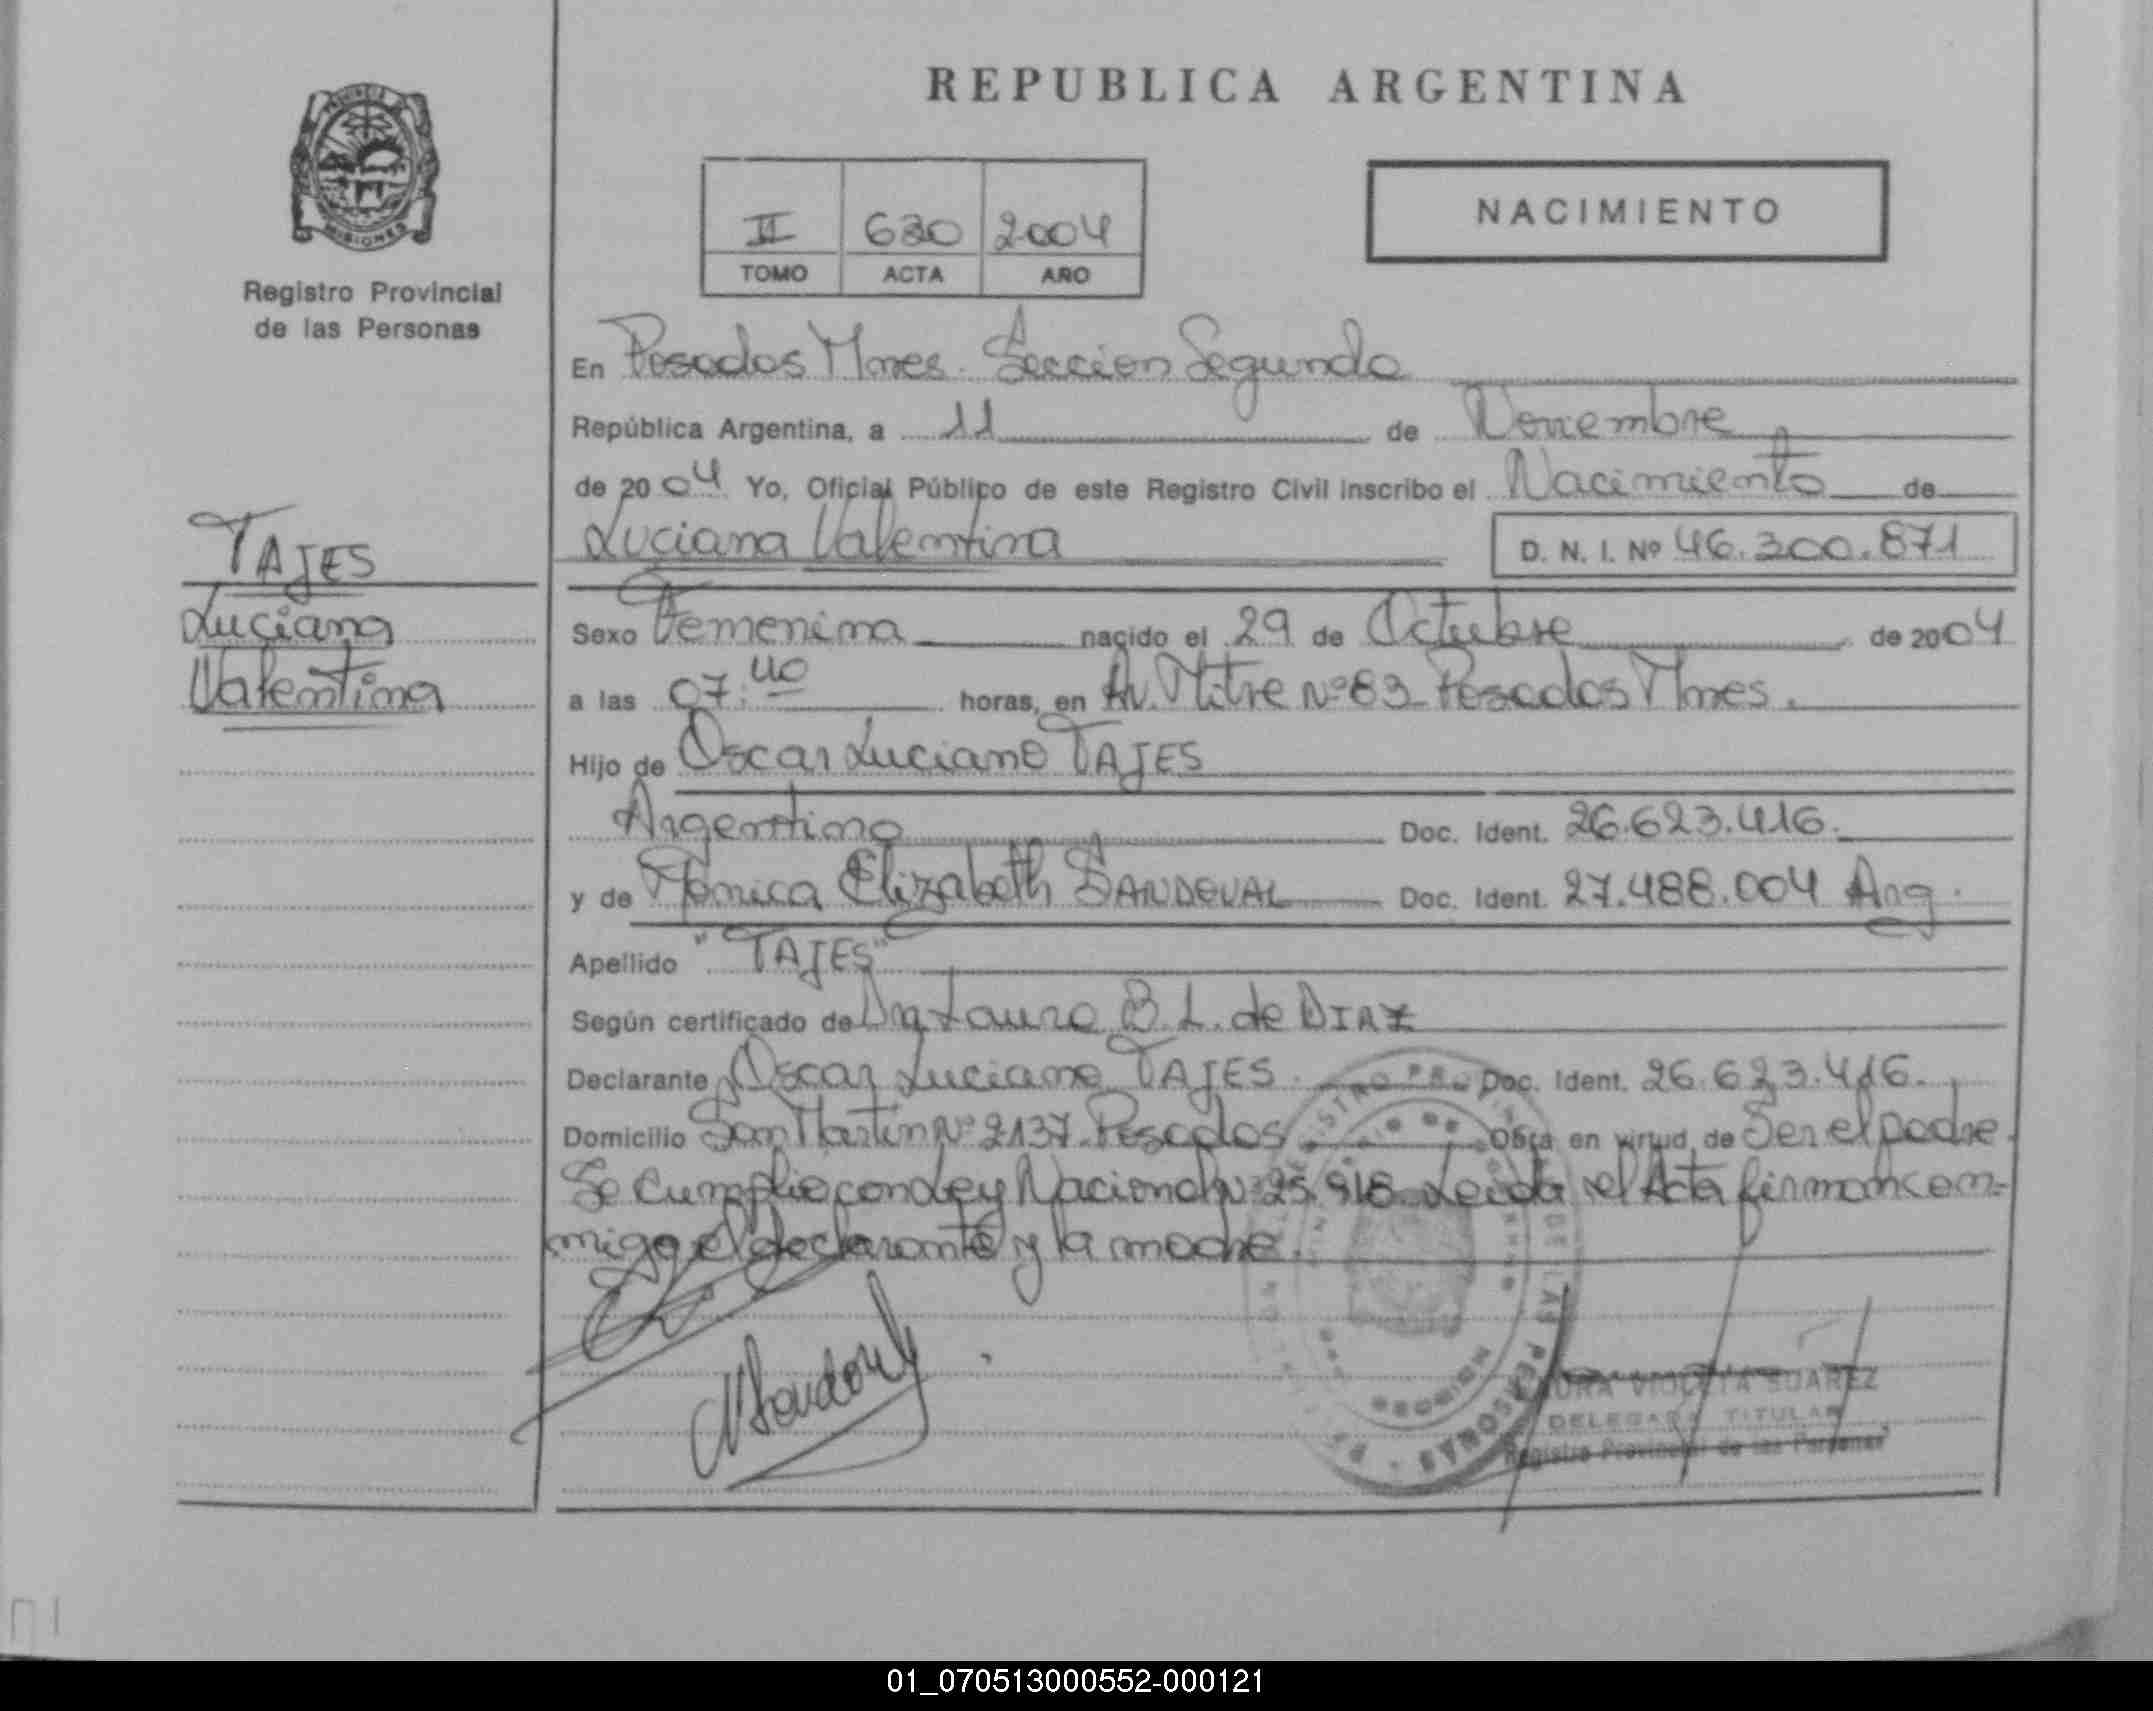 REPUBLICA ARGENTINA
PROVINCIA DE
MISIONES
Registro Provincial
de las Personas
II 630 2004
TOMO ACTA AÑO
NACIMIENTO
En Posadas Mnes. Sección Segunda
República Argentina, a 11 de Noviembre
de 2004 Yo, Oficial Público de este Registro Civil inscribo el Nacimiento de
Luciana Valentina D. N. I. Nº 46.300.871
TAJES
Luciana
Valentina
Sexo Femenina nacido el 29 de Octubre de 2004
a las 07:40 horas, en Av. Mitre Nº 83 Posadas Mnes.
Hijo de Oscar Luciano TAJES
Argentino Doc. Ident. 26.623.416.
y de Mónica Elizabeth SANDOVAL Doc. Ident. 27.488.004 Arg.
Apellido "TAJES"
Según certificado de Dra Laura B. L. de DIAZ
Declarante Oscar Luciano TAJES. Doc. Ident. 26.623.416.
Domicilio San Martin Nº 2137 Posadas Obra en virtud de Ser el padre.
Se Cumplio con Ley Nacional Nº 25.918 Leida el Acta firman con-
migo el declarante y la madre.
MSandoval
VIOLETA SUAREZ
DELEGADA TITULAR
Registro Provincial de las Personas
01_070513000552-000121